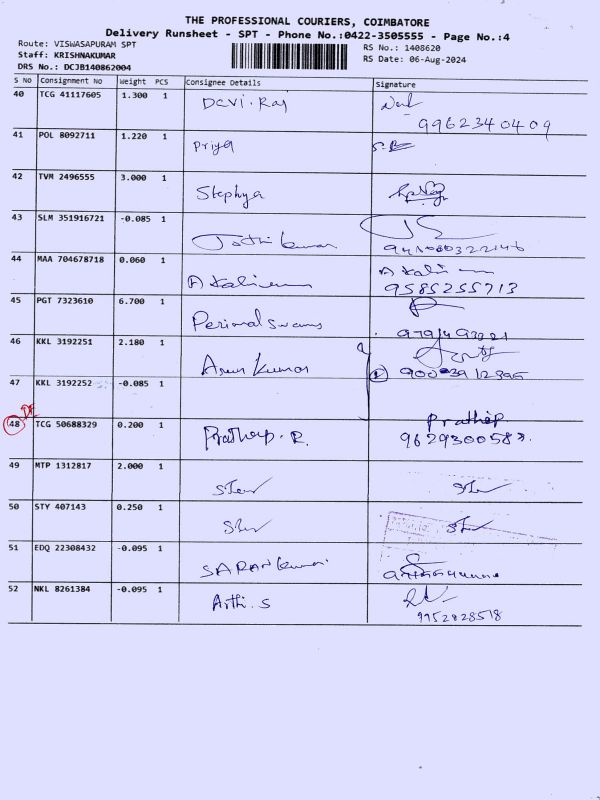 THE PROFESSIONAL COURIERS, COIMBATORE
Delivery Runsheet - SPT - Phone No.:0422-3505555 - Page No.:4
Route: VISWASAPURAM SPT
Staff: KRISHNAKUMAR
DRS No.: DCJB140862004
RS No.: 1408620
RS Date: 06-Aug-2024
S No Consignment No Weight PCS Consignee Details Signature
40 TCG 41117605 1.300 1 Devi. Raj
9962340409
41 POL 8092711 1.220 1 Priya
42 TVM 2496555 3.000 1 Stephya
43 SLM 351916721 -0.085 1 Jothi kumar
44 MAA 704678718 0.060 1
9585255713
45 PGT 7323610 6.700 1 Perimal swamy
46 KKL 3192251 2.180 1 Arun Kumar
47 KKL 3192252 -0.085 1
48 TCG 50688329 0.200 1 Prathap. R. Prathap
9629300583.
49 MTP 1312817 2.000 1
50 STY 407143 0.250 1
51 EDQ 22308432 -0.095 1 SARAN kumar
52 NKL 8261384 -0.095 1 Arthi. S
9952828518